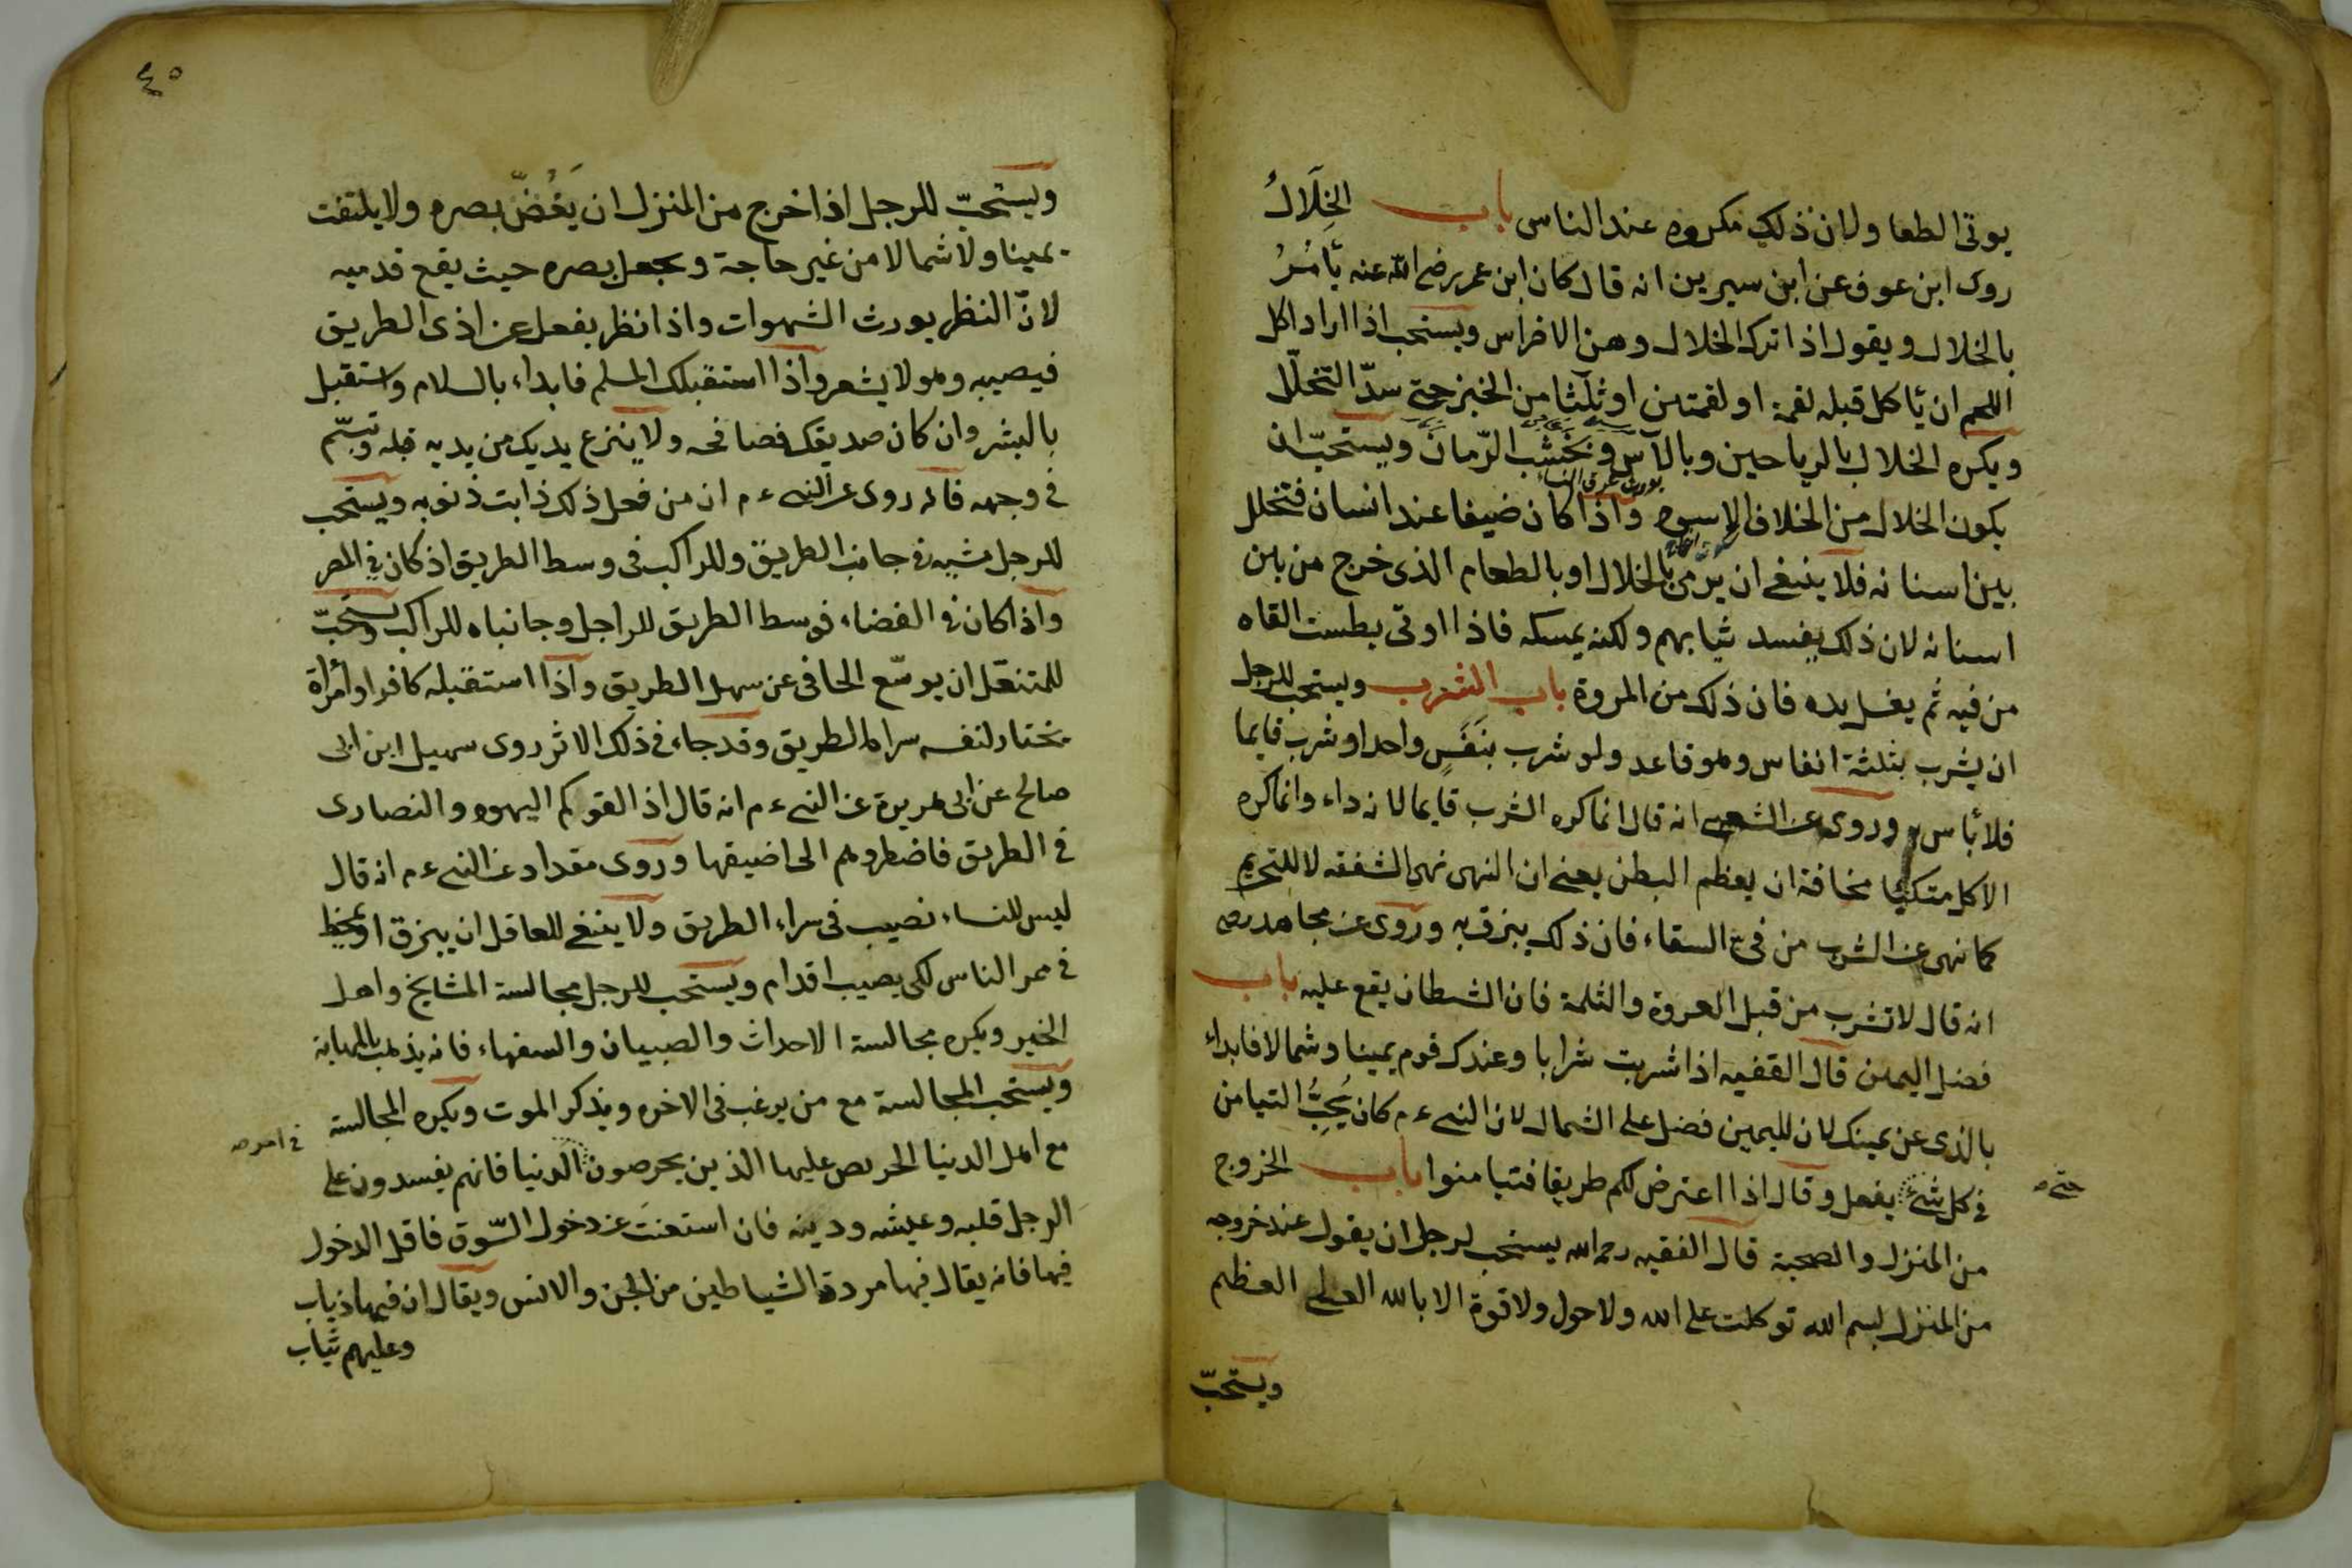 يوتى الطعا ولان ذلك مكروه عند الناس باب الخِلَالُ
روى ابن عوف عن ابن سيرين انه قال كان ابن عمر رضى الله عنه يَأمُرُ
بالخلال ويقول اذا ترك الخلال وهن الاضراس ويستحب اذا اراد اكل
اللحم ان يأكل قبله لقمة او لقمتين او ثلثا من الخبز حتى سدّ التخلّل
ويكره الخلال بالرياحين وبالآس وبخشب الرّمان ويستحبّ ان
يكون الخلال من الخلاف الاسود واذا كان ضيفا عند انسان فتخلل
بين اسنانه فلا ينبغى ان يرمى بالخلال او بالطعام الذى خرج من بين
اسنانه لان ذلك يفسد ثيابهم ولكنه يمسكه فاذا اوتى بطست القاه
من فيه ثم يغسل يده فان ذلك من المروة باب الشرب ويستحب للرجل
ان يشرب بثلثة انفاس وهو قاعد ولو شرب بنَفَسٍ واحد او شرب قايما
فلا بأس وروى عن الشعبى انه قال انما كره الشرب قايما لانه داء وانما كره
الاكل متكيا مخافة ان يعظم البطن يعنى ان النهى نهى الشفقه لا للتحريم
كما نهى عن الشرب من فىّ السقاء فان ذلك يبزق به وروى عن مجاهد رضى
انه قال لا تشرب من قبل العروة والثلمة فان الشيطان يقع عليه باب
فضل اليمين قال الفقيه اذا شربت شرابا وعندك قوم يمينا وشمالا فابداء
بالذى عن يمينك لان لليمين فضل على الشمال لان النبى ءم كان يُحِبُّ التيامن
فى كل شئ يفعل وقال اذا اعترض لكم طريقا فتيامنوا باب الخروج
حتى صح
من المنزل والصحبة قال الفقيه رحمه الله يستحب لرجل ان يقول عند خروجه
من المنزل بسم الله توكلت على الله ولا حول ولا قوة الا بالله العلى العظيم
ويستحبّ
٤٥
ويستحبّ للرجل اذا خرج من المنزل ان يَغُضّ بصره ولا يلتفت
يمينا ولا شمالا من غير حاجة ويجعل بصره حيث يقع قدميه
لانّ النظر يورث الشهوات واذا نظر يفعل عن اذى الطريق
فيصيبه وهو لا يشعر واذا استقبلك المسلم فابداء بالسلام واستقبل
بالبشر وان كان صديقك فصافحه ولا ينزع يديك من يديه قبله وتبسّم
فى وجهه فانه روى عن النبى ءم ان من فعل ذلك ذابت ذنوبه ويستحب
للرجل مشيه فى جانب الطريق وللراكب فى وسط الطريق اذ كان فى المصر
واذا كان فى الفضاء فوسط الطريق للراجل وجانباه للراكب ويستحبّ
للمتنعّل ان يوسّع الحافى عن سهل الطريق واذا استقبله كافرا وامرأة
يختار لنفسه سراة الطريق وقد جاء فى ذلك الاثر روى سهيل ابن ابى
صالح عن ابى هريرة عن النبى ءم انه قال اذ القوكم اليهود والنصارى
فى الطريق فاضطروهم الى اضيقها وروى مقداد عن النبى ءم انه قال
ليس للنساء نصيب فى سراء الطريق ولا ينبغى للعاقل ان يبزق او يمخط
فى ممر الناس لكى يصيب اقدام ويستحب للرجل مجالسة المشايخ واهل
الخير ويكره مجالسة الاحداث والصبيان والسفهاء فانه يذهب بالمهابة
ويستحب المجالسة مع من يرغب فى الاخره ويذكر الموت ويكره المجالسة
مع اهل الدنيا الحريص عليها الذين يحرصون الدنيا فانهم يفسدون على
فى امر صح
الرجل قلبه وعيشه ودينه فان استعنتَ عن دخول السّوق فاقل الدخول
فيها فانه يقال فيها مردة الشياطين من الجن والانس ويقال ان فيها ذياب
وعليهم ثياب